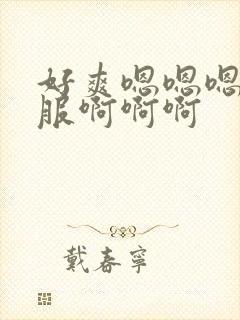 好爽嗯嗯嗯
服啊啊啊
戴春寧